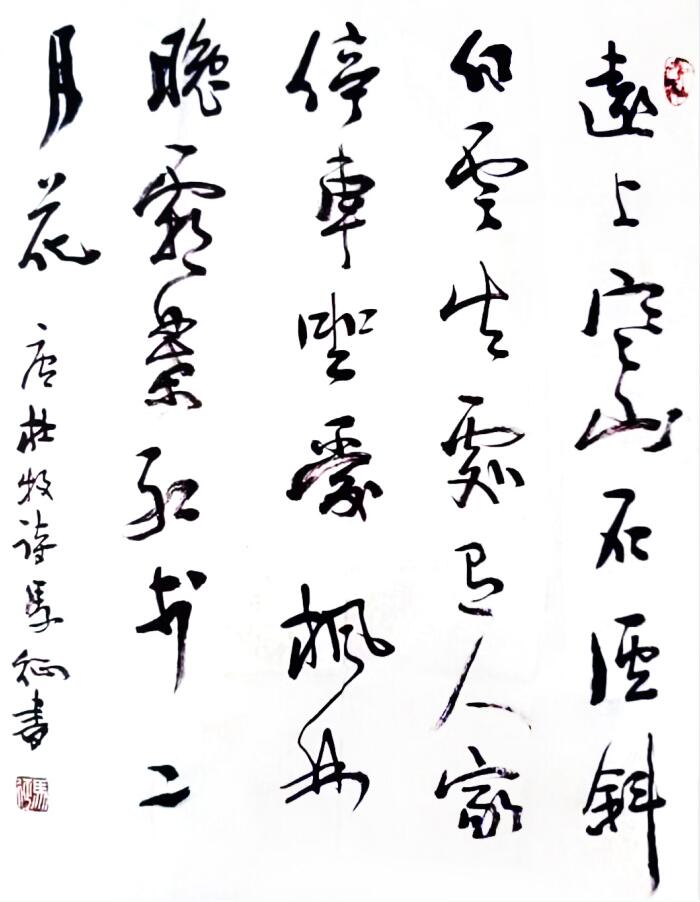 遠上寒山石徑斜
白雲生處有人家
停車坐愛楓林
晚霜葉紅於二
月花
唐杜牧詩馬征書
馬征